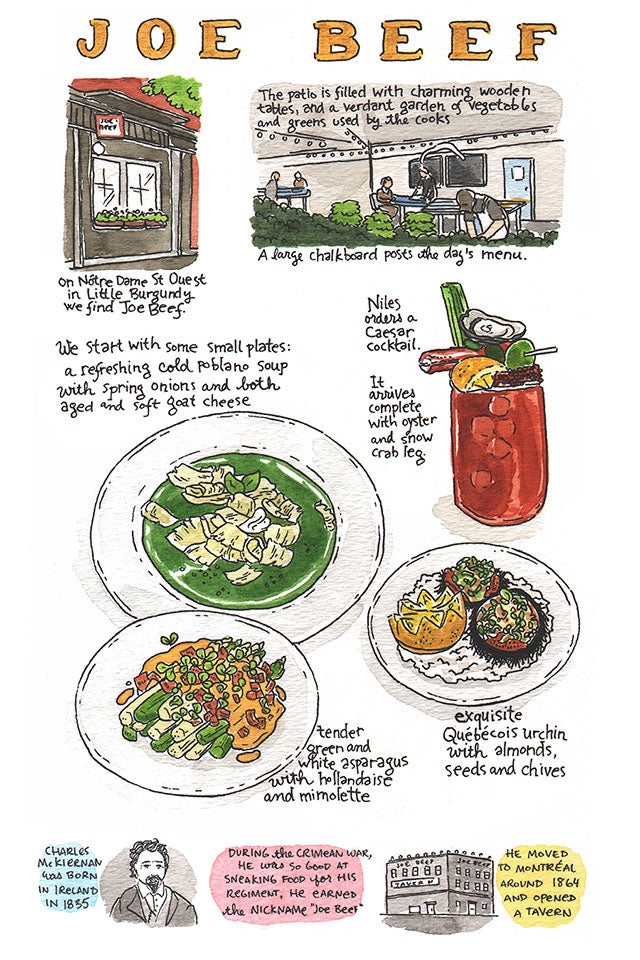 JOE BEEF
JOE
BEEF
The patio is filled with charming wooden
tables, and a verdant garden of vegetables
and greens used by the cooks
A large chalkboard posts the day's menu.
on Nôtre Dame St Ouest
in Little Burgundy
we find Joe Beef.
Niles
orders a
Caesar
cocktail.
It
arrives
complete
with oyster
and snow
crab leg.
We start with some small plates:
a refreshing cold poblano soup
with spring onions and both
aged and soft goat cheese
tender
green and
white asparagus
with hollandaise
and mimolette
exquisite
Québécois urchin
with almonds,
seeds and chives
CHARLES
McKIERNAN
was BORN
IN IRELAND
IN 1835
DURING the CRIMEAN WAR,
HE was SO GOOD AT
SNEAKING FOOD for HIS
REGIMENT, HE EARNED
the NICKNAME "Joe Beef"
JOE BEEF
JOE BEEF
TAVERN
HE MOVED
TO MONTRÉAL
AROUND 1864
AND OPENED
A TAVERN